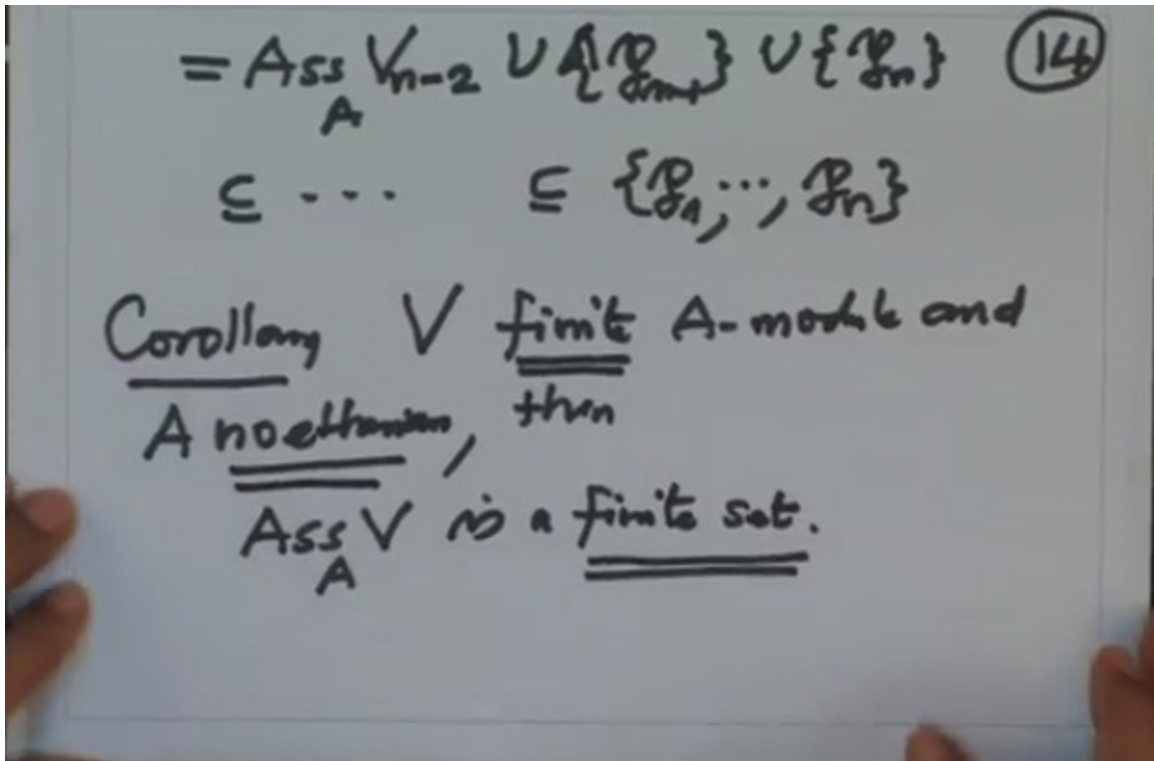 = Ass_A V_{n-2} ∪ {𝔭_{n-1}} ∪ {𝔭_n} (14)
⊆ ··· ⊆ {𝔭_1, ···, 𝔭_n}
Corollary V finite A-module and
A noetherian, then
Ass_A V is a finite set.